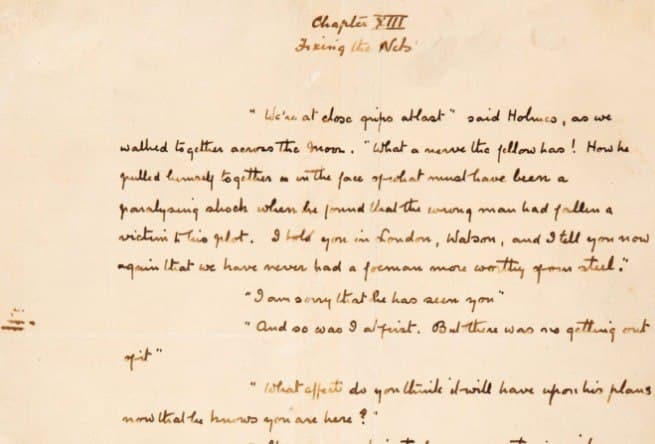 Chapter XIII
Fixing the Nets
"We're at close grips at last" said Holmes, as we
walked together across the moor. "What a nerve the fellow has! How he
pulled himself together in the face of what must have been a
paralysing shock when he found that the wrong man had fallen a
victim to his plot. I told you in London, Watson, and I tell you now
again that we have never had a foeman more worthy of our steel."
"I am sorry that he has seen you"
"And so was I at first. But there was no getting out
of it"
"What effect do you think it will have upon his plans
now that he knows you are here?"